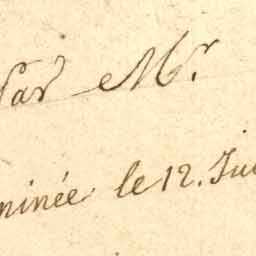 Par Mr.
minée le 12. Jui